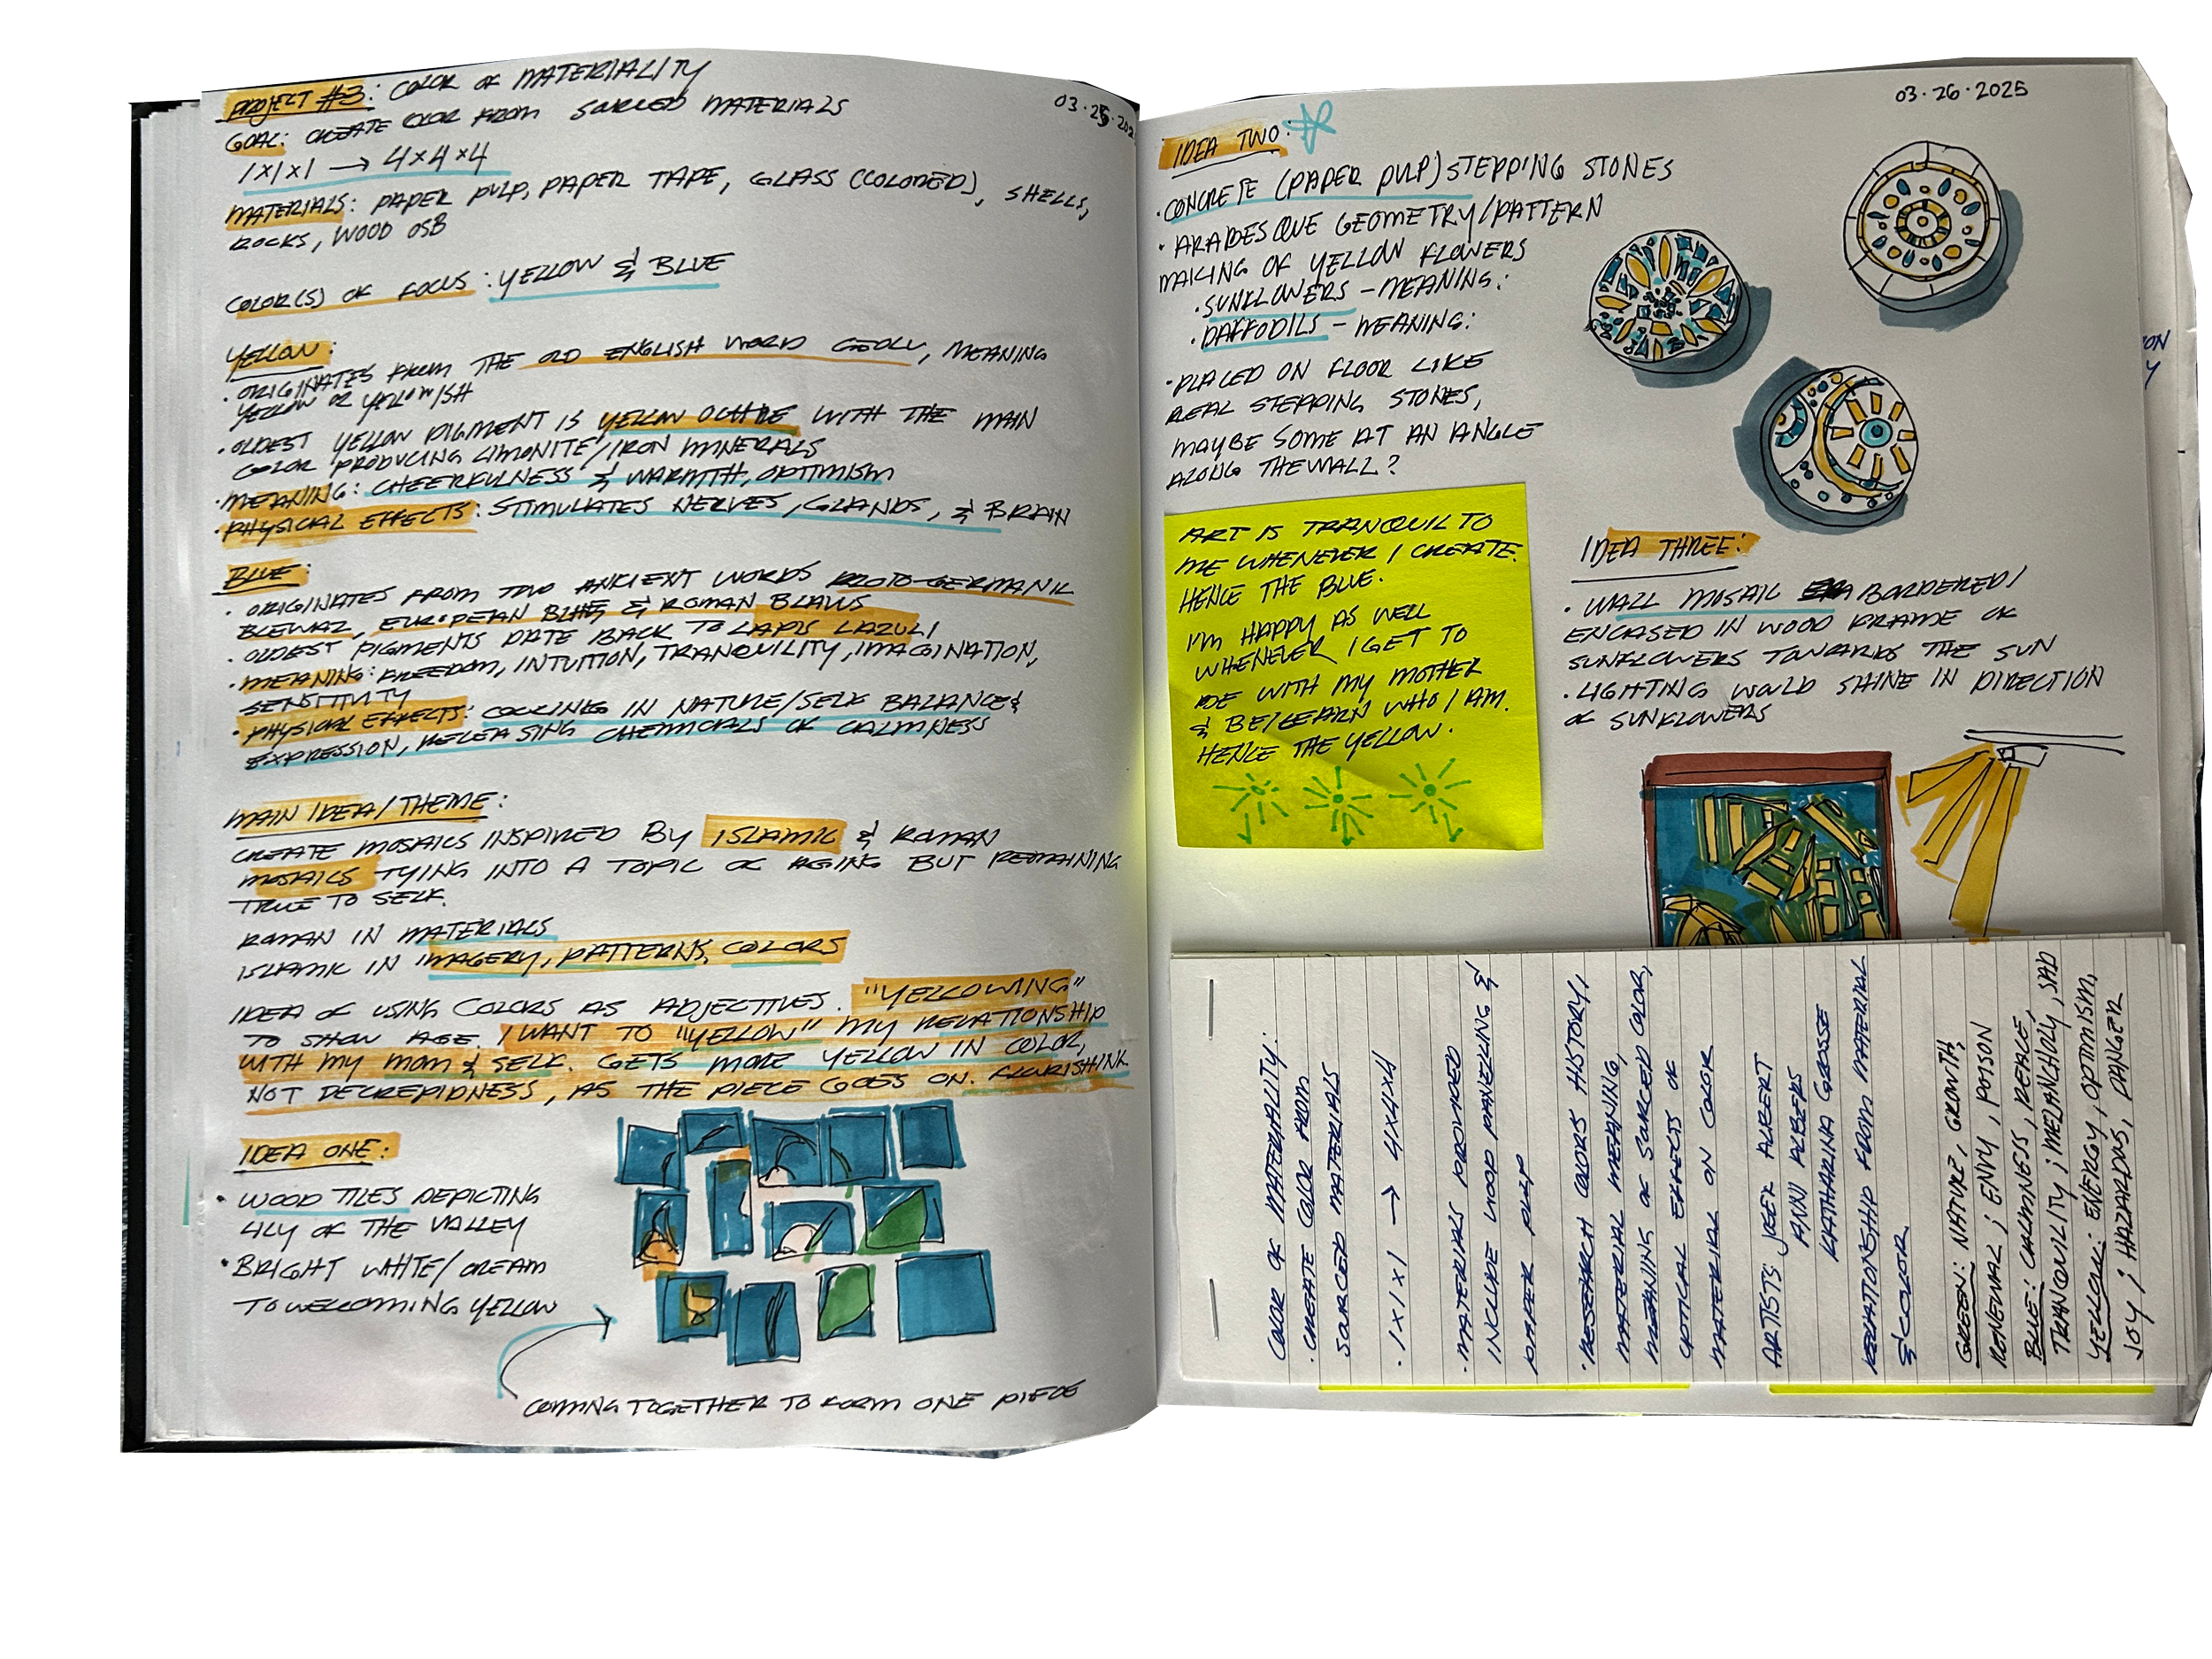 PROJECT #3: COLOR OF MATERIALITY
03·25·202
GOAL: CREATE COLOR FROM SOURCED MATERIALS
1×1×1 → 4×4×4
MATERIALS: PAPER PULP, PAPER TAPE, GLASS (COLORED), SHELLS,
ROCKS, WOOD OSB
COLOR(S) OF FOCUS: YELLOW & BLUE
YELLOW:
· ORIGINATES FROM THE OLD ENGLISH WORD GEOLU, MEANING
YELLOW OR YELLOWISH
· OLDEST YELLOW PIGMENT IS YELLOW OCHRE WITH THE MAIN
COLOR PRODUCING LIMONITE/IRON MINERALS
· MEANING: CHEERFULNESS & WARMTH, OPTIMISM
· PHYSICAL EFFECTS: STIMULATES NERVES, GLANDS, & BRAIN
BLUE:
· ORIGINATES FROM TWO ANCIENT WORDS PROTO-GERMANIC
BLEWAZ, EUROPEAN & ROMAN BLAWS
· OLDEST PIGMENTS DATE BACK TO LAPIS LAZULI
· MEANING: FREEDOM, INTUITION, TRANQUILITY, IMAGINATION,
SENSITIVITY
· PHYSICAL EFFECTS: COOLING IN NATURE/SELF BALANCE &
EXPRESSION, RELEASING CHEMICALS OF CALMNESS
MAIN IDEA/THEME:
CREATE MOSAICS INSPIRED BY ISLAMIC & ROMAN
MOSAICS TYING INTO A TOPIC OF AGING BUT REMAINING
TRUE TO SELF.
ROMAN IN MATERIALS
ISLAMIC IN IMAGERY, PATTERNS, COLORS
IDEA OF USING COLORS AS ADJECTIVES. "YELLOWING"
TO SHOW AGE. I WANT TO "YELLOW" MY RELATIONSHIP
WITH MY MOM & SELF. GETS MORE YELLOW IN COLOR,
NOT DECREPIDNESS, AS THE PIECE GOES ON.
IDEA ONE:
· WOOD TILES DEPICTING
LILY OF THE VALLEY
· BRIGHT WHITE/CREAM
TO WELCOMING YELLOW
COMING TOGETHER TO FORM ONE PIECE
03·26·2025
IDEA TWO:
· CONCRETE (PAPER PULP) STEPPING STONES
· ARABESQUE GEOMETRY/PATTERN
MAKING OF YELLOW FLOWERS
· SUNFLOWERS - MEANING:
· DAFFODILS - MEANING:
· PLACED ON FLOOR LIKE
REAL STEPPING STONES,
MAYBE SOME AT AN ANGLE
ALONG THE WALL?
ART IS TRANQUIL TO
ME WHENEVER I CREATE.
HENCE THE BLUE.
I'M HAPPY AS WELL
WHENEVER I GET TO
BE WITH MY MOTHER
& BE/LEARN WHO I AM.
HENCE THE YELLOW.
IDEA THREE:
· WALL MOSAIC BORDERED/
ENCASED IN WOOD FRAME OF
SUNFLOWERS TOWARDS THE SUN
· LIGHTING WOULD SHINE IN DIRECTION
OF SUNFLOWERS
COLOR OF MATERIALITY:
· CREATE COLOR FROM
SOURCED MATERIALS
· 1×1×1 → 4×4×4
· MATERIALS PROVIDED
INCLUDE WOOD PANELING &
PAPER PULP
· RESEARCH COLORS HISTORY,
MATERIAL MEANING,
MEANING OF SOURCED COLOR,
OPTICAL EFFECTS OF
MATERIAL ON COLOR
ARTISTS: ALBERT
ANNI ALBERS
KATHARINA GROSSE
RELATIONSHIP FROM MATERIAL
& COLOR
GREEN: NATURE, GROWTH,
RENEWAL; ENVY, POISON
BLUE: CALMNESS, PEACE,
TRANQUILITY; MELANCHOLY, SAD
YELLOW: ENERGY, OPTIMISM,
JOY; HAZARDS, DANGER